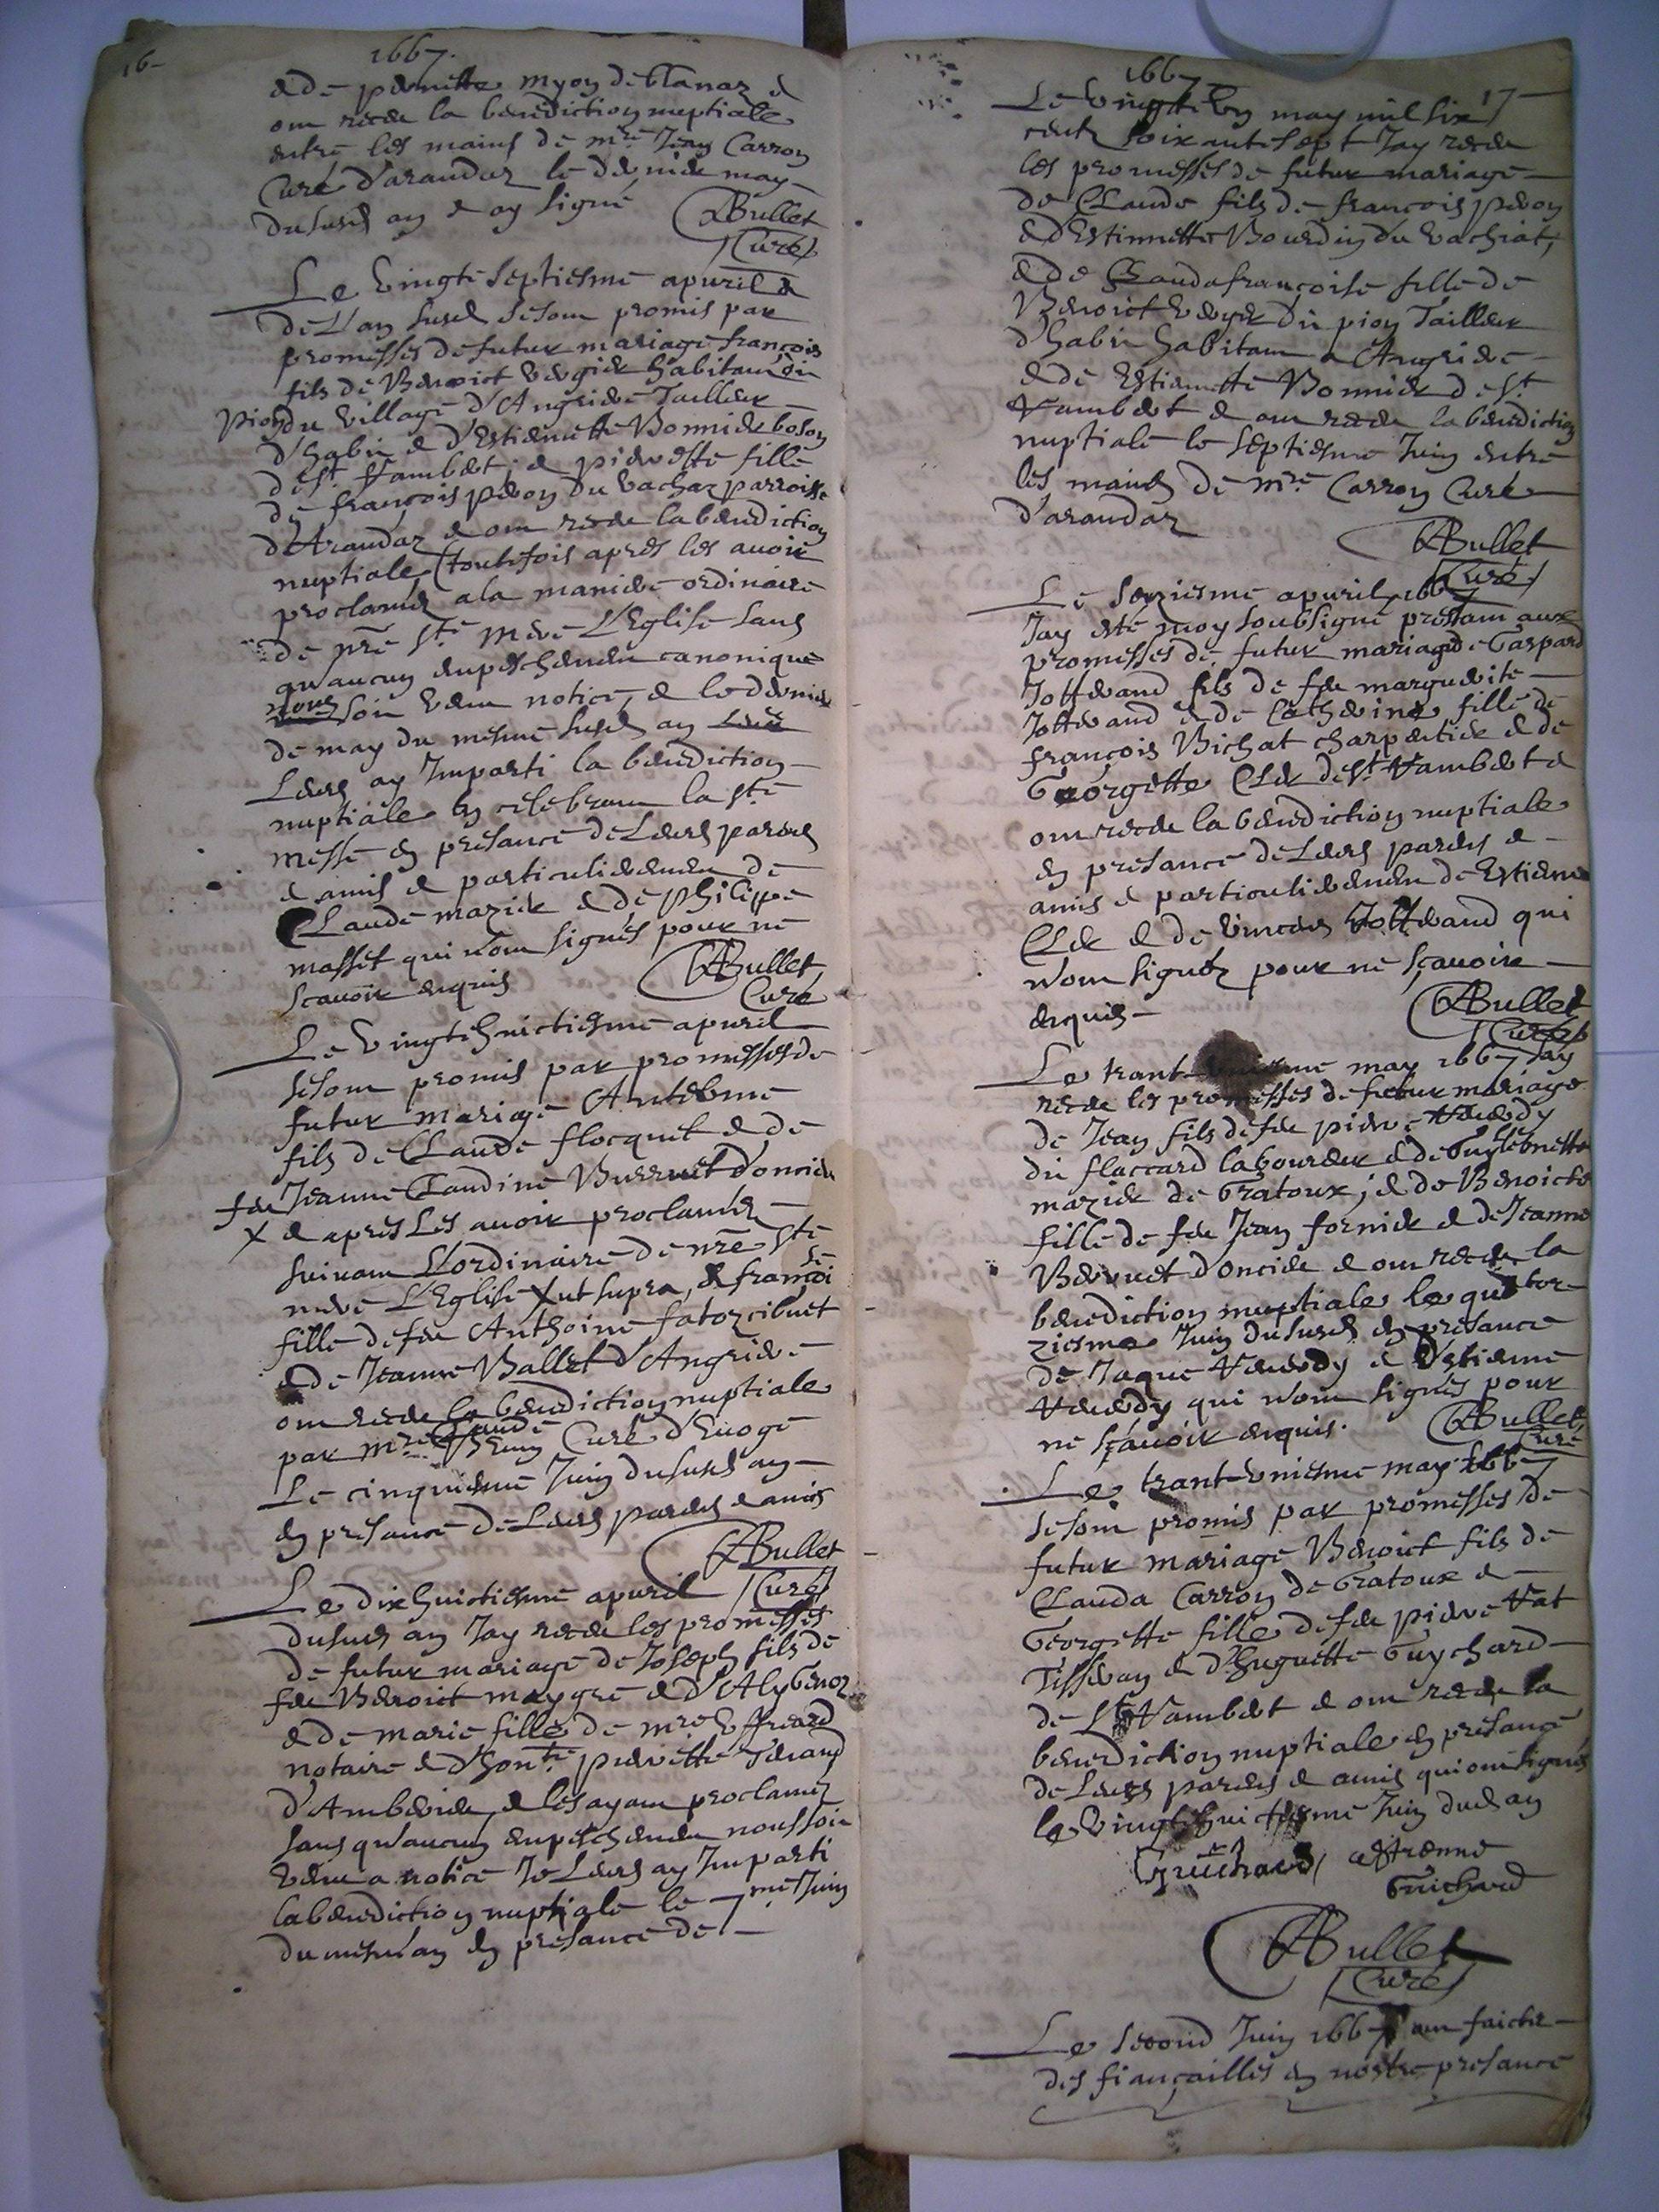 16-
1667.
& de pernette myon de blanaz &
ont receu la benediction nuptiale
entre les mains de mre Jean Carron
Curé d'arandaz le dernier may
dususd an & ay signé
ABullet
Curé
Le vingte septiesme apuril
de L'an susd sesont promis par
promesses de futur mariage françois
fils de Benoict vergier habitant
pion du village d'Angrieve Tailleur
d'habit & d'Estiennette Bonnier boson
de St Rambert, & pierrette fille
de françois peron du vachaz parroisse
d'Arandaz & ont receu la benediction
nuptiale (toutefois apres les avoir
proclamés ala maniere ordinaire
de nre Ste mere L'Eglise sans
qu'aucun enpeschement canonique
nous soit venu notice, & le dernier
de may du mesme susd an
Leurs ay Imparti la benediction
nuptiale en celebrant la ste
messe en presance de Leurs parens
& amis & particulierement de
Claude mazier & de philippe
masset qui n'ont signés pour ne
scauoir enquis
ABullet
Curé
Le vingte huictiesme apuril
sesont promis par promesses de
futur mariage Antelme
fils de Claude flocquet & de
feu Jeanne Claudine Burruet d'oncieu
X & apres Les avoir proclamés
suivant L'ordinaire de nre ste
mere L'Eglise X ut supra, & françoise
fille de feu Anthoine fatoz cibuet
& de Jeanne Ballet d'Angrieve
ont receu la benediction nuptiale
par mre Claude Curé d'Euoge
Le cinquiesme Juin dususd an
en presance de Leurs parens & amis
ABullet
Curé
Le dixhuictiesme apuril
dususd an Jay receu les promesses
de futur mariage de Joseph fils de
feu Benoict maygre & d'Aly
& de marie fille de mre
notaire & d'hon.te pierrette
d'Amberieu, & les ayant proclamez
sans qu'aucun enpeschement nous soit
venu a notice Je Leurs ay Imparti
la benediction nuptiale le 7me Juin
du mesme an en presance de
1667
17
Le vingte un may mil six
cent soixante sept Jay receu
les promesses de futur mariage
de Claude fils de françois peron
& d'Estiennette Bourdin du vachiat,
& de Claudafrançoise fille de
Benoict vergier du pion Tailleur
d'habit habitant a Angrieve
& de Estiennette Bonnier de St
Rambert & ont receu la benediction
nuptiale le septiesme Juin entre
les mains de mre Carron Curé
d'arandaz
ABullet
Curé
Le seziesme apuril 1667
Jay esté moy soubsigné present aux
promesses de futur mariage de Gaspard
Jotterand fils de feu marguerite
Jotterand & de Catherine fille de
françois Bichat charpentier & de
Georgette Cler de St Rambert &
ont receu la benediction nuptiale
en presance de Leurs parens &
amis & particulierement de Estienne
Cler & de vincens Jotterand qui
n'ont signéz pour ne sçavoir
enquis
ABullet
Curé
Le trant uniesme may 1667 Jay
receu les promesses de futur mariage
de Jean fils de feu pierre
du flaccard laboureur & de Guylebmette
mazier de Gratoux; & de Benoicte
fille de feu Jean fornier & de Jeanne
Berruet d'oncieu & ont receu la
benediction nuptiale le quator
ziesme Juin dususd en presance
de Jaque & d'Estienne
qui n'ont signés pour
ne sçavoir enquis.
ABullet
Curé
Le trant uniesme may 1667
sesont promis par promesses de
futur mariage Benoict fils de
Clauda Carron de Gratoux &
Georgette fille de feu pierre Rat
Tisseran & d'huguette Guychard
de St Rambert & ont receu la
benediction nuptiale en presance
de Leurs parens & amis qui ont signés
le vingthuictiesme Juin dud an
Guichard
estienne
Guichard
ABullet
Curé
Le second Juin 1667 ont faictz
des fiançailles en nostre presance